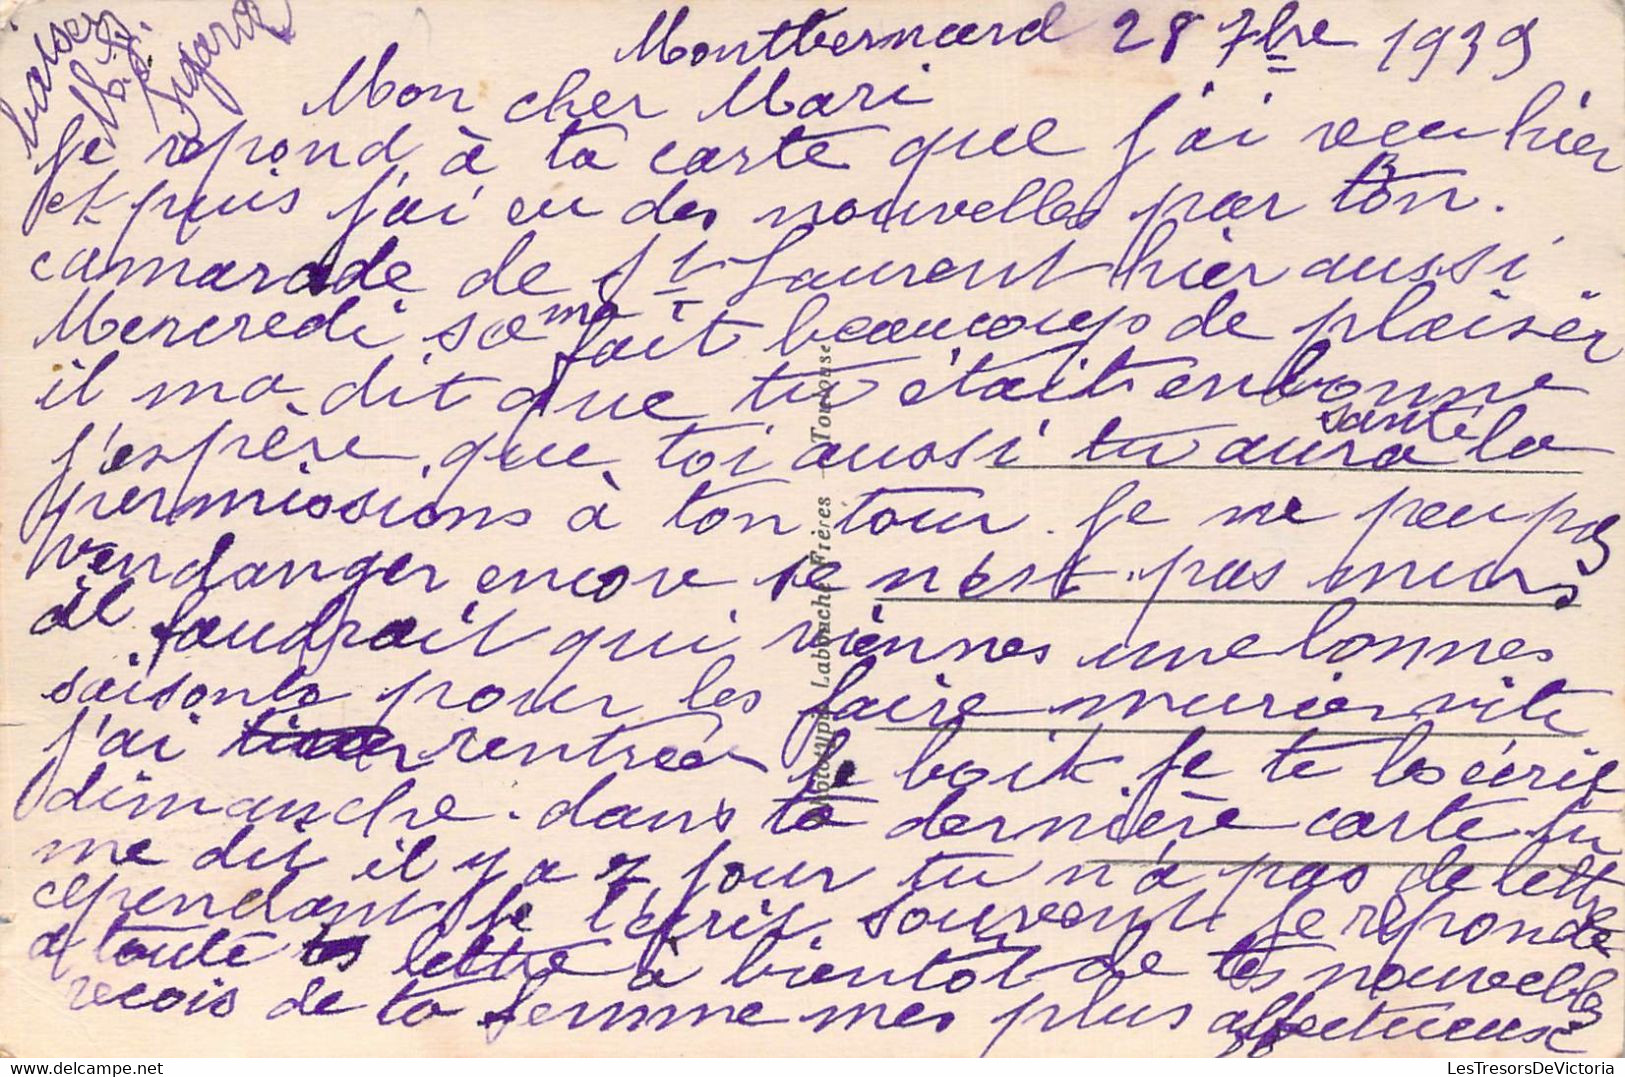 Montbernard 28 7bre 1939
Mon cher Mari
Je répond à ta carte que j'ai recu hier
et puis j'ai eu des nouvelles par ton
camarade de St Laurent hier aussi
Mercredi sa ma fait beaucoups de plaisir
il ma dit que tu était en bonne
santé
j'espère que toi aussi tu aura la
permissions à ton tour. Je ne peu pas
vendanger encore se n'est pas murs
il faudrait qui viennes une bonnes
saisonts pour les faire murier vite
j'ai rentrée le boit Je te les écrit
dimanche. dans ta dernière carte tu
me dit il y a 7 jour tu n'a pas de lettre
cependant je t'écrit souvent je réponde
a toute tes lettre à bientôt de tes nouvelles
recois de ta femme mes plus affectueuse
baiser
Sigara
Phototypie Labouche Frères - Toulouse
LesTresorsDeVictoria
delcampe.net